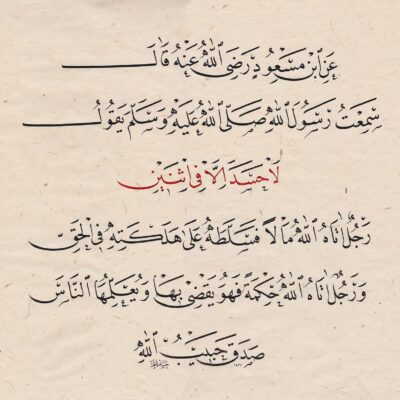 عَنِ ابْنِ مَسْعُودٍ رَضِيَ اللّٰهُ عَنْهُ قَالَ
سَمِعْتُ رَسُولَ اللّٰهِ صَلَّى اللّٰهُ عَلَيْهِ وَسَلَّمَ يَقُولُ
لَا حَسَدَ اِلَّا فِي اثْنَيْنِ
رَجُلٌ اٰتَاهُ اللّٰهُ مَالًا فَسَلَّطَهُ عَلَى هَلَكَتِهِ فِي الْحَقِّ
وَرَجُلٌ اٰتَاهُ اللّٰهُ حِكْمَةً فَهُوَ يَقْضِي بِهَا وَيُعَلِّمُهَا النَّاسَ
صَدَقَ حَبِيبُ اللّٰهِ